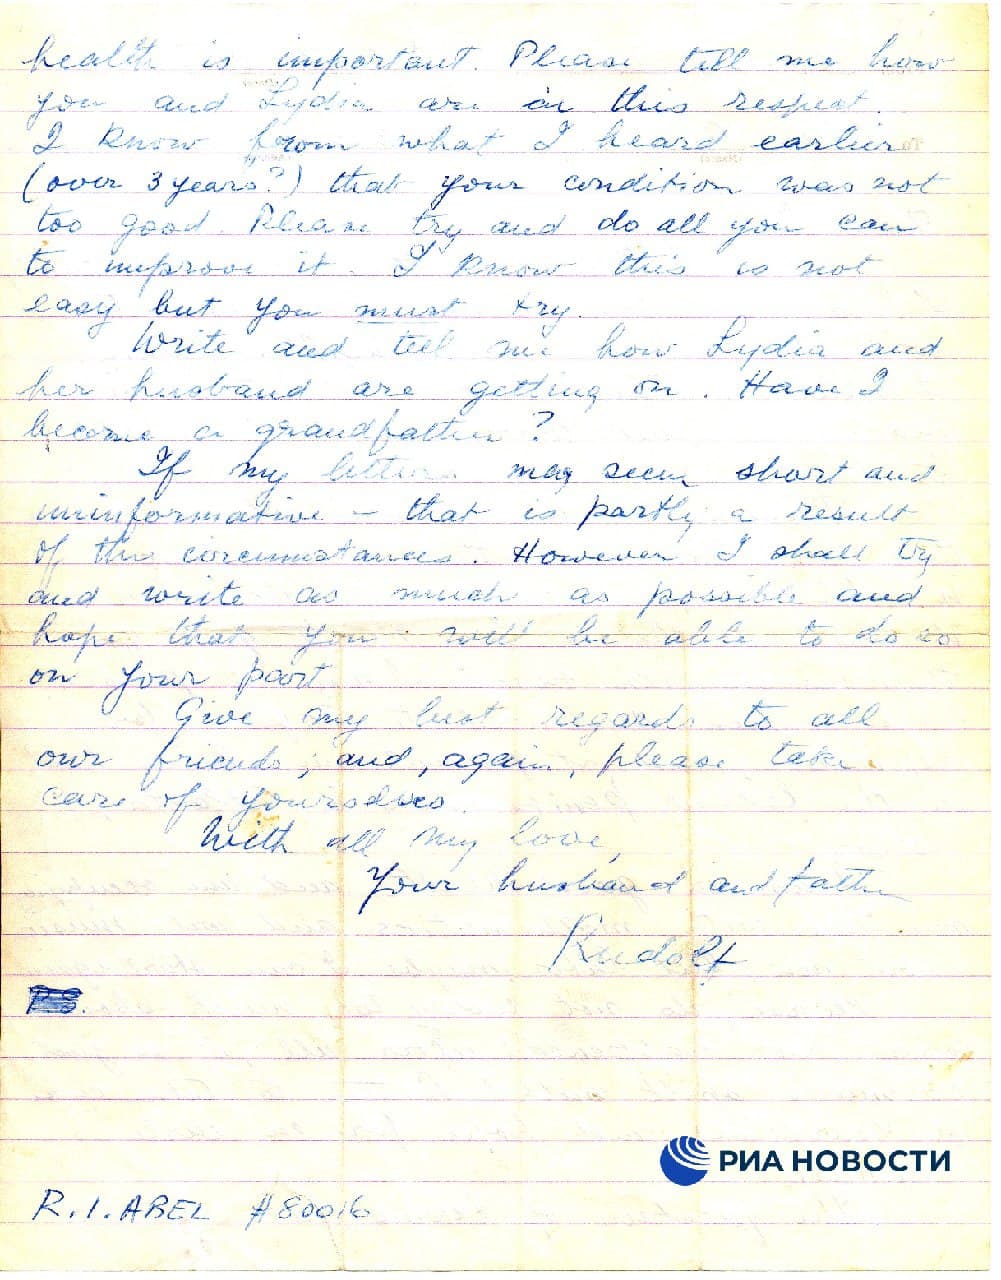 health is important. Please tell me how
you and Lydia are in this respect.
I know from what I heard earlier
(over 3 years?) that your condition was not
too good. Please try and do all you can
to improve it. I know this is not
easy but you must try.
Write and tell me how Lydia and
her husband are getting on. Have I
become a grandfather?
If my letters may seem short and
uninformative – that is partly a result
of the circumstances. However I shall try
and write as much as possible and
hope that you will be able to do so
on your part
Give my best regards to all
our friends, and, again, please take
care of yourselves.
With all my love,
Your husband and father
Rudolf
PS.
РИА НОВОСТИ
R.I. ABEL #80016